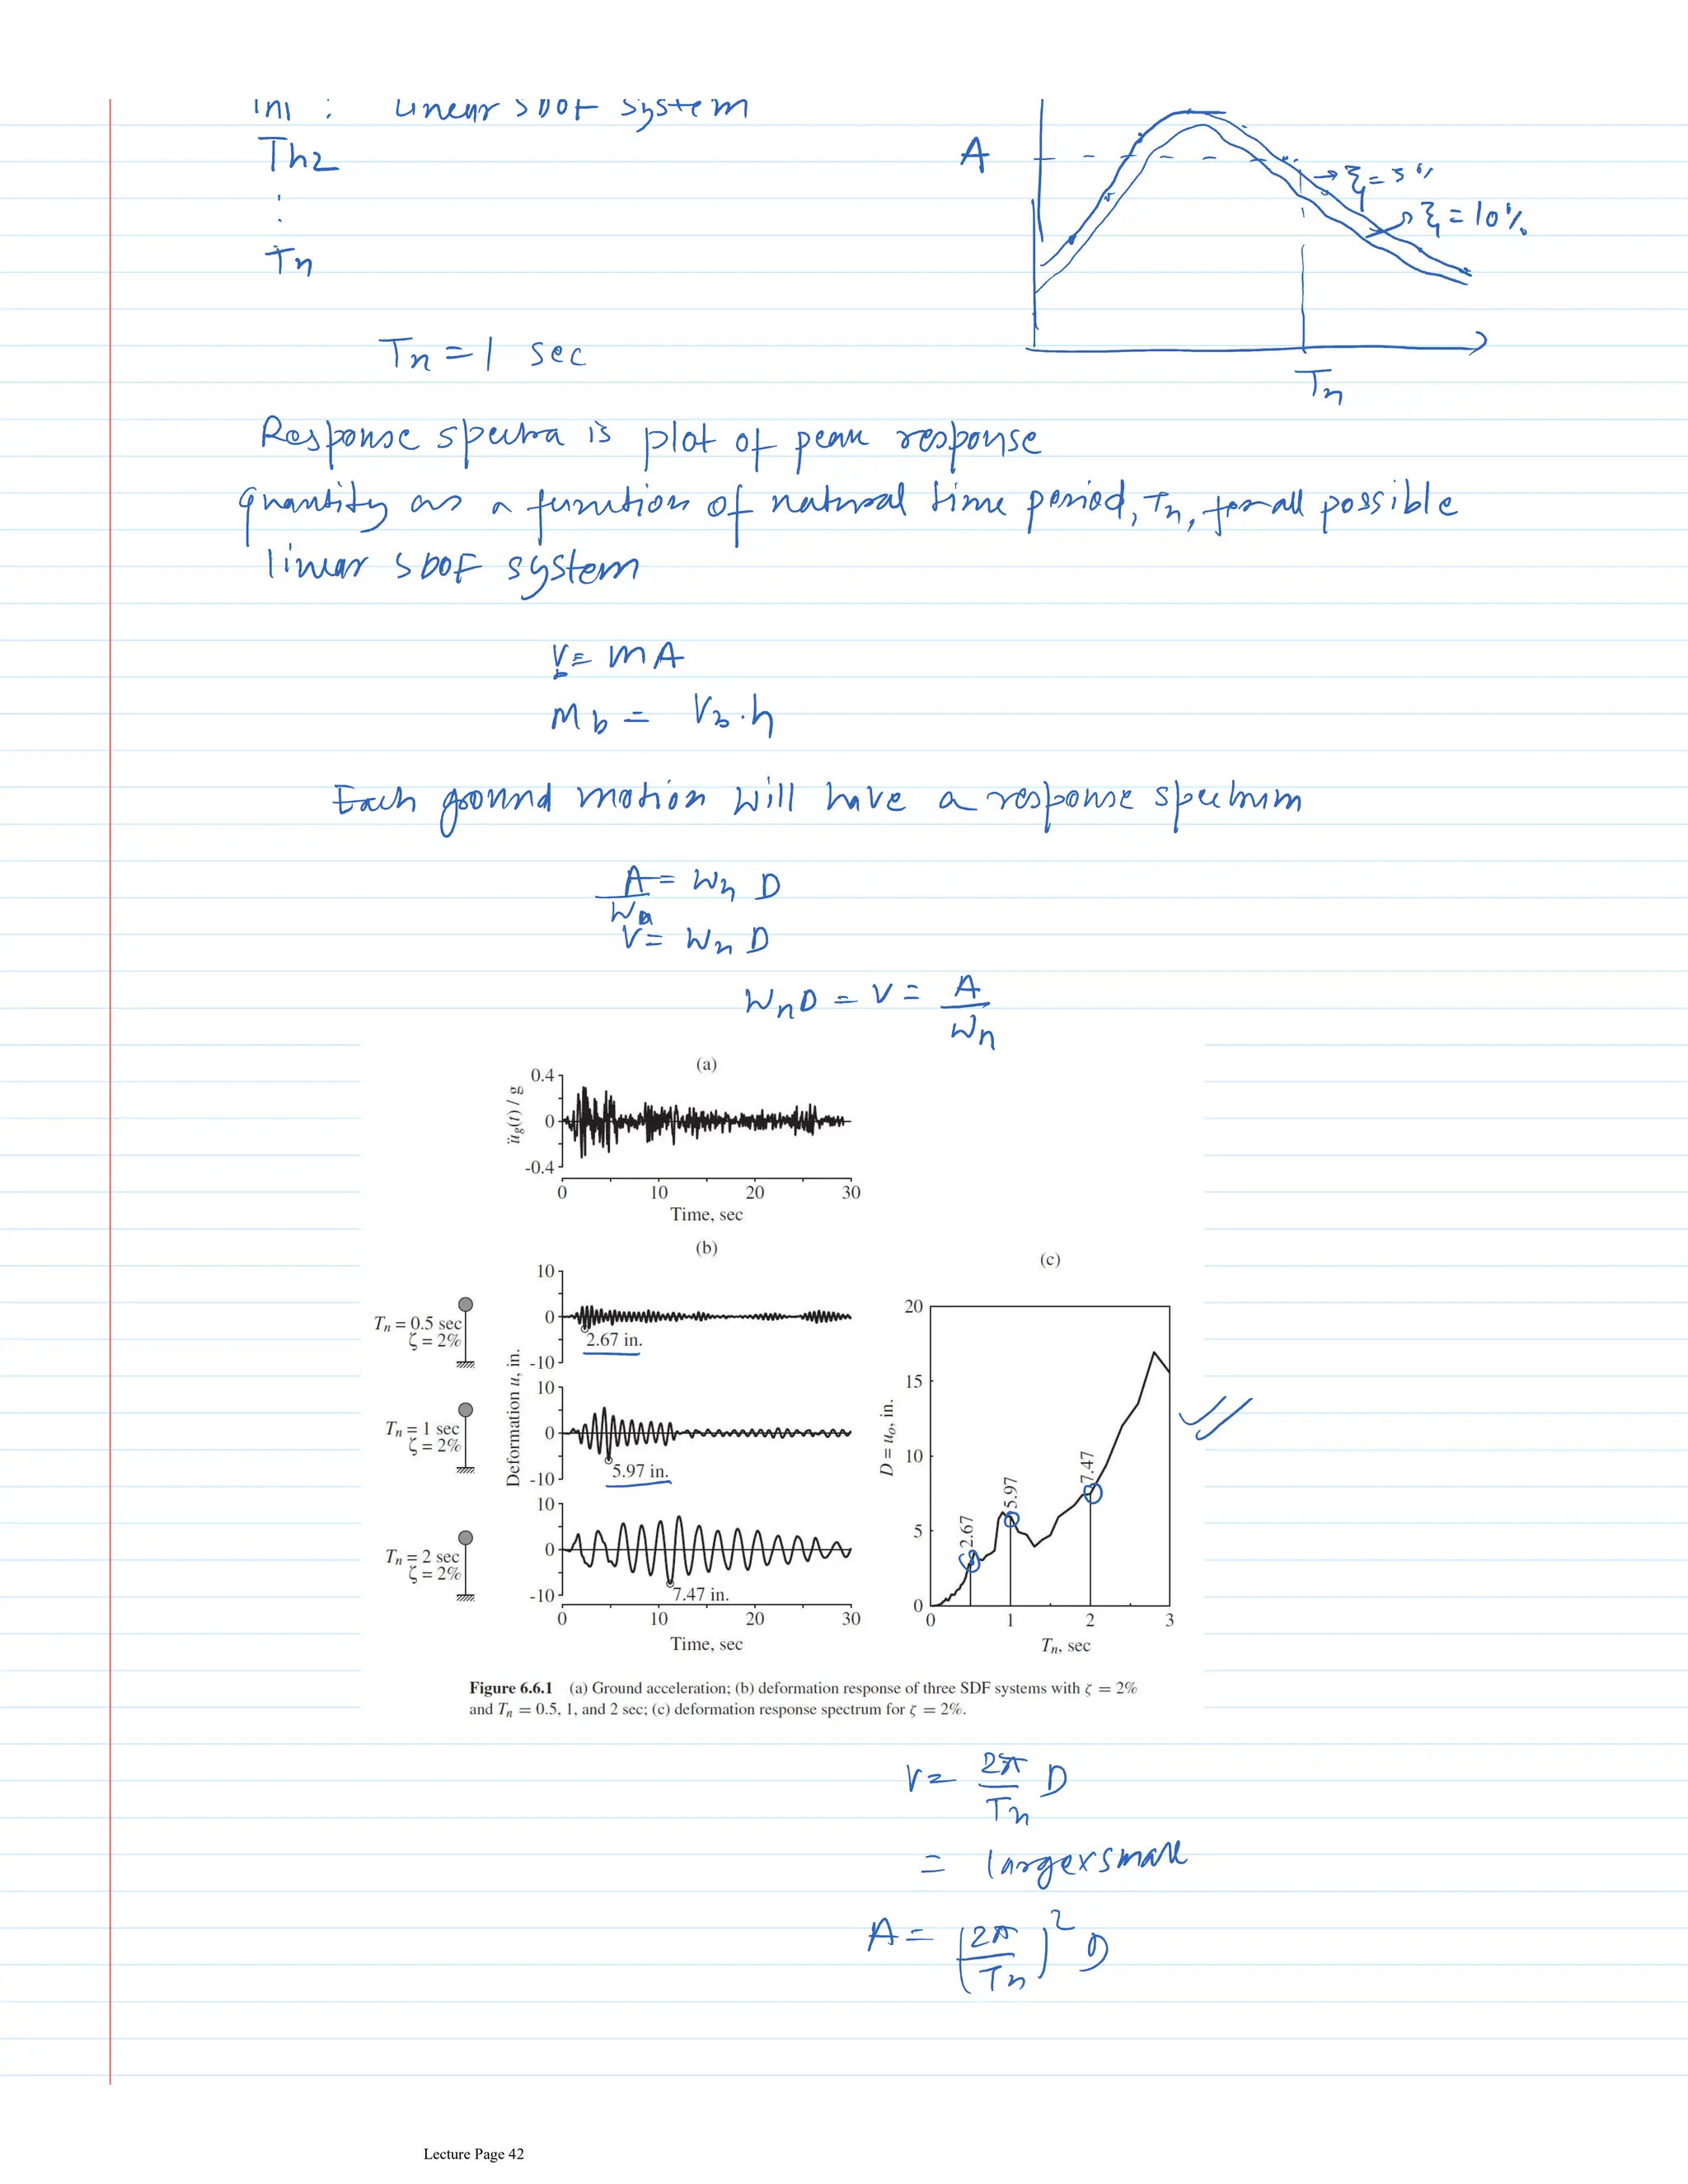 Linear SDOF system
Tn2
:
Tn
A
ξ = 5%
ξ = 10%
Tn
Tn = 1 sec
Response spectra is plot of peak response
quantity as a function of natural time period, Tn, for all possible
linear SDOF system
Vb = mA
Mb = Vb.h
Each ground motion will have a response spectrum
A/Wn = Wn D
V = Wn D
WnD = V = A/Wn
(a)
0.4
0
-0.4
üg(t) / g
0 10 20 30
Time, sec
(b)
(c)
Tn = 0.5 sec
ζ = 2%
10
0
-10
2.67 in.
Tn = 1 sec
ζ = 2%
10
0
-10
5.97 in.
Tn = 2 sec
ζ = 2%
10
0
-10
7.47 in.
Deformation u, in.
0 10 20 30
Time, sec
20
15
10
5
0
D = uo, in.
2.67
5.97
7.47
0 1 2 3
Tn, sec
Figure 6.6.1 (a) Ground acceleration; (b) deformation response of three SDF systems with ζ = 2%
and Tn = 0.5, 1, and 2 sec; (c) deformation response spectrum for ζ = 2%.
V = 2π/Tn D
= large x small
A = (2π/Tn)² D
Lecture Page 42